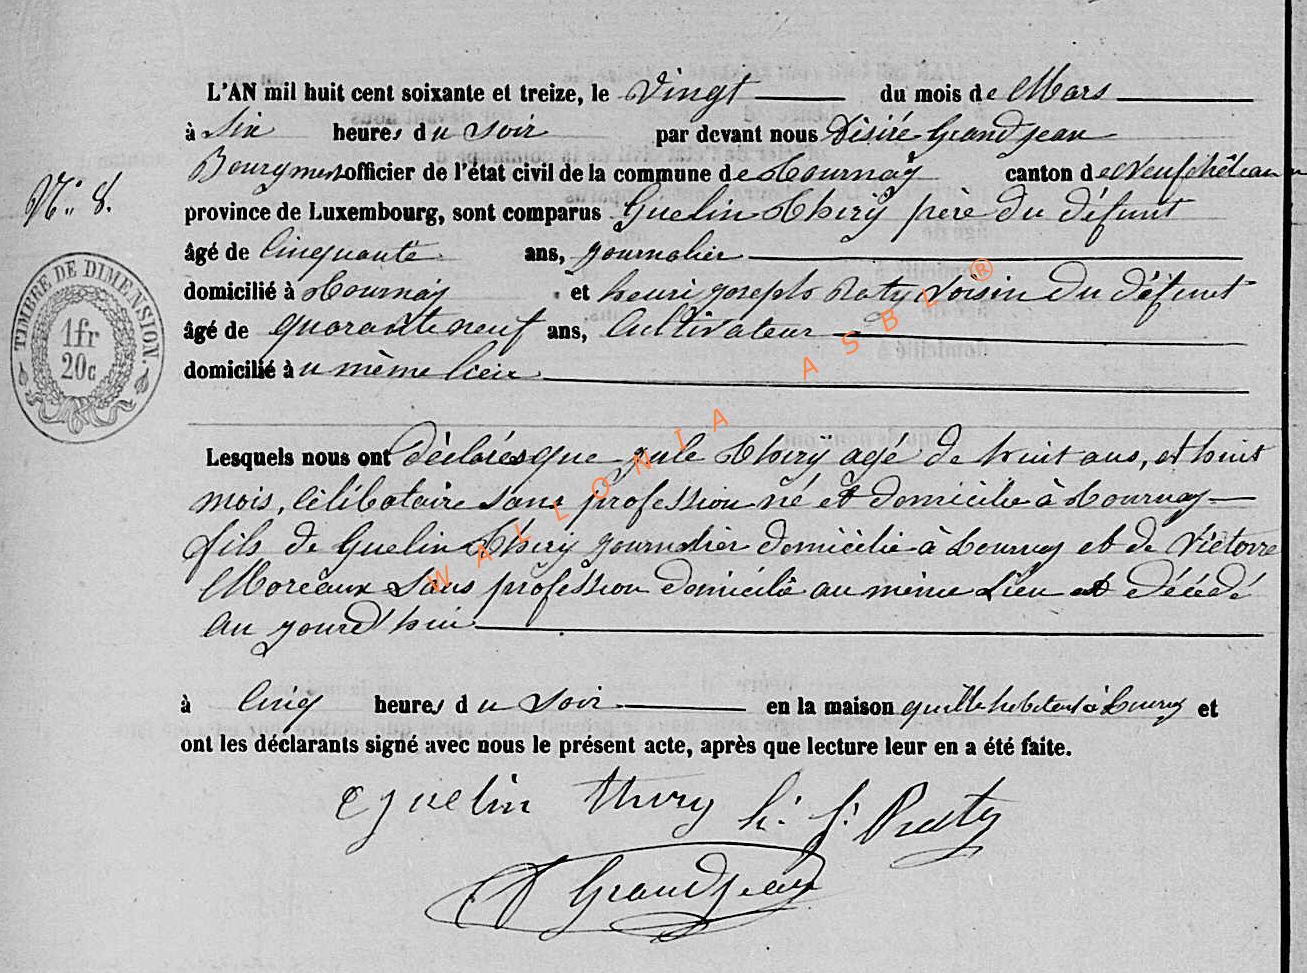 L'AN mil huit cent soixante et treize, le Vingt du mois de Mars
à Six heures du soir par devant nous Désiré Grandjean
Bourgmest officier de l'état civil de la commune de Tournay canton de Neufchâteau
N° 8.
province de Luxembourg, sont comparus Guelin Thiry père du défunt
âgé de Cinquante ans, journalier
domicilié à Tournay et henri joseph Raty voisin du défunt
âgé de quarante neuf ans, Cultivateur
domicilié au même lieu
TIMBRE DE DIMENSION
1fr
20c
Lesquels nous ont déclarés que jule Thiry agé de huit ans, et huit
mois, célibataire sans profession né et domicilié à Tournay
fils de Guelin Thiry journalier domicilié à Tournay et de Victoire
Moreaux sans profession domicilié au même Lieu est décédé
au jourd'hui
à Cinq heures du soir en la maison qu'ille habitent à Tournay et
ont les déclarants signé avec nous le présent acte, après que lecture leur en a été faite.
Guelin thiry h. j. Raty
D Grandjean
WALLONIA ASBL ®